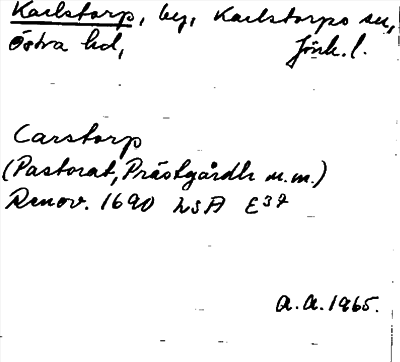 Karlstorp, by, Karlstorps sn,
Östra hd, Jönk. l.
Carstorp
(Pastorat, Prästgårdh m.m.)
Renov. 1690 LSA E37
A.A. 1965.